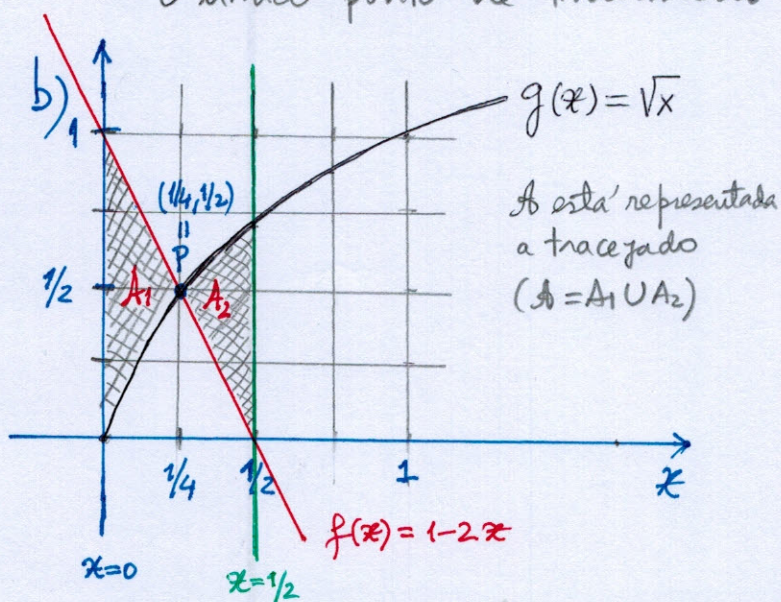 b)
g(x) = √x
1
(1/4, 1/2)
=
P
A está representada
a tracejado
(A = A₁ ∪ A₂)
1/2
A₁
A₂
1/4
1/2
1
x
f(x) = 1-2x
x=0
x=1/2